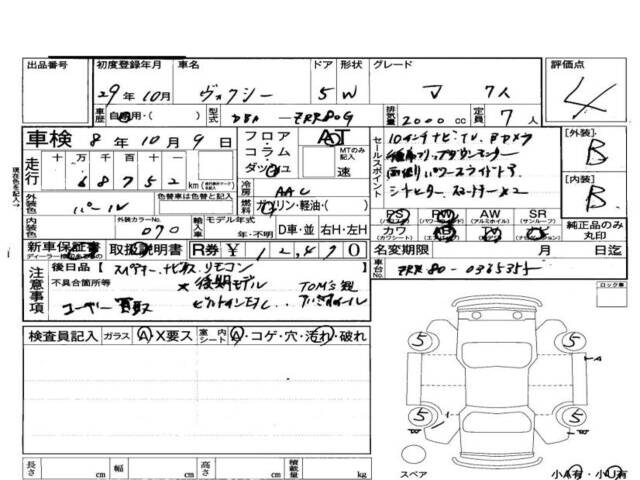 出品番号 初度登録年月 車名 ドア 形状 グレード 評価点
29年 10月 ヴォクシー 5 W 7人 4
車歴 自家用・( ) 型式 DBA-ZRR80G 排気量 2000cc 定員 7人
車検 8年 10月 9日 フロア AT
コラム MTのみ記入
ダッシュ 速
走行 十 万 千 百 十 一
6 8 7 5 2 km
現在色を記入→
セールスポイント
10インチナビ TV Bカメラ
後席フリップダウンモニター
両側パワースライドドア
シートヒーター スマートキー×2
[外装] B
[内装] B
冷房 AAC
燃料 ガソリン・軽油・( )
外装色 パール 色替車は色替と記入
内装色 外装カラーNo. 070 輸入車 モデル年式 年・不明 D車・並 右H・左H
PS PW AW SR
(パワステ) (パワーウィンドウ) (アルミホイル) (サンルーフ)
カワ AB TV ナビ
(カワシート) (エアバッグ)
純正品のみ丸印
新車保証書 取扱説明書 R券 ¥12,490
名変期限 月 日迄
車台No. ZRR80-0365355
注意事項
後日品 [スペアキー、ナビ、リモコン
不具合箇所等 ×後期モデル TOM'S
ユーザー買取
検査員記入 ガラス A・X要ス 室内シート A・コゲ・穴・汚れ・破れ
ロック車
5 5
A
5 5
スペア 小A有・小U有
長さ cm 幅 cm 高さ cm 積載量 kg